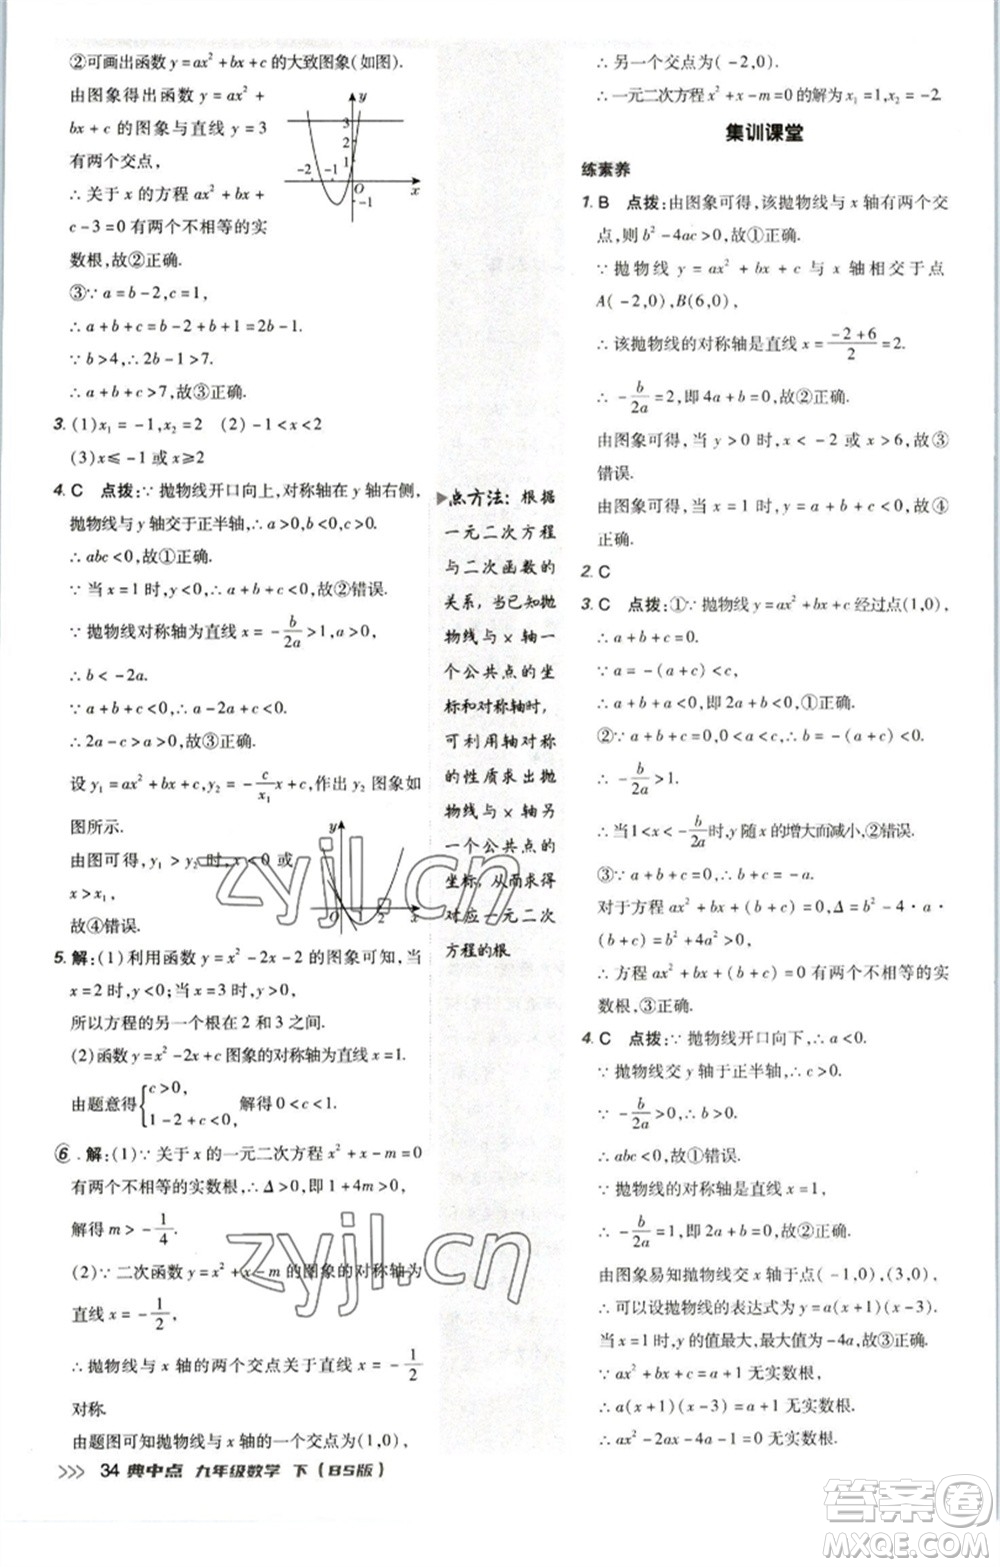 ②可画出函数 y=ax²+bx+c 的大致图象(如图).
由图象得出函数 y=ax²+
bx+c 的图象与直线 y=3
有两个交点,
∴关于 x 的方程 ax²+bx
+c-3=0 有两个不相等的实
数根,故②正确.
③∵a=b-2,c=1,
∴a+b+c=b-2+b+1=2b-1.
∵b>4,∴2b-1>7.
∴a+b+c>7,故③正确.
y
3
2
1
-2
-1
O
x
-1
3. (1)x₁=-1,x₂=2 (2)-1<x<2
(3)x≤-1或x≥2
4. C 点拨:∵抛物线开口向上,对称轴在 y 轴右侧,
抛物线与 y 轴交于正半轴,∴a>0,b<0,c>0.
∴abc<0,故①正确.
∵当 x=1时,y<0,∴a+b+c<0,故②错误.
∵抛物线对称轴为直线 x=-b/2a>1,a>0,
∴b<-2a.
∵a+b+c<0,∴a-2a+c
∴2a-c>0,故③正确.
设 y₁=ax²+bx+c,y₂=-c/x₁ x+c,作出 y₂ 图象如
图所示.
由图可得,y₁>y₂时,x<0或
x>x₁,
故④错误.
y
O
1
2
x
5. 解:(1)利用函数 y=x²-2x-2的图象可知,当
x=2时,y<0;当 x=3时,y>0,
所以方程的另一个根在2和3之间.
(2)函数 y=x²-2x+c 图象的对称轴为直线 x=1.
由题意得{c>0, 1-2+c<0, 解得0<c<1.
6. 解:(1)∵关于 x 的一元二次方程 x²+x-m=0
有两个不相等的实数根,∴Δ>0,即1+4m>0,
解得 m>-1/4.
(2)∵二次函数 y=x²+x-m 的图象的对称轴为
直线 x=-1/2,
∴抛物线与 x 轴的两个交点关于直线 x=-1/2
对称.
由题图可知抛物线与 x 轴的一个交点为(1,0),
34 典中点 九年级数学 下(BS版)
点方法:根据
一元二次方程
与二次函数的
关系,当已知抛
物线与x轴一
个公共点的坐
标和对称轴时,
可利用轴对称
的性质求出抛
物线与x轴另
一个公共点的
坐标,从而求得
对应一元二次
方程的根.
∴另一个交点为(-2,0).
∴一元二次方程 x²+x-m=0的解为x₁=1,x₂=-2.
集训课堂
练素养
1. B 点拨:由图象可得,该抛物线与 x 轴有两个交
点,则 b²-4ac>0,故①正确.
∵抛物线 y=ax²+bx+c 与 x 轴相交于点
A(-2,0),B(6,0),
∴该抛物线的对称轴是直线 x=(-2+6)/2=2.
∴-b/2a=2,即4a+b=0,故②正确.
由图象可得,当 y>0时,x<-2或 x>6,故③
错误.
由图象可得,当 x=1时,y=a+b+c<0,故④
正确.
2. C
3. C 点拨:①∵抛物线 y=ax²+bx+c 经过点(1,0),
∴a+b+c=0.
∵a=-(a+c)<c,
∴a+(a+c)<0,即2a+c<0,①正确.
②∵a+b+c=0,0<a<c,
∴-b/2a>1.
∴当1<x<-b/2a时,y 随 x 的增大而减小,②错误.
③∵a+b+c=0,∴b+c=-a.
对于方程 ax²+bx+(b+c)=0,Δ=b²-4·a·
(b+c)=b²+4a²>0,
∴方程 ax²+bx+(b+c)=0有两个不相等的实
数根,③正确.
4. C 点拨:∵抛物线开口向下,∴a<0.
∵抛物线交 y 轴于正半轴,∴c>0.
∵-b/2a>0,∴b>0.
∴abc<0,故①错误.
∵抛物线的对称轴是直线 x=1,
∴-b/2a=1,即2a+b=0,故②正确.
由图象易知抛物线交 x 轴于点(-1,0),(3,0),
∴可以设抛物线的表达式为 y=a(x+1)(x-3).
当 x=1时,y 的值最大,最大值为-4a,故③正确.
∵ax²+bx+c=a+1无实数根,
∴a(x+1)(x-3)=a+1无实数根.
zyjl.cn
zyjl.cn
答案圈
MXQE.COM